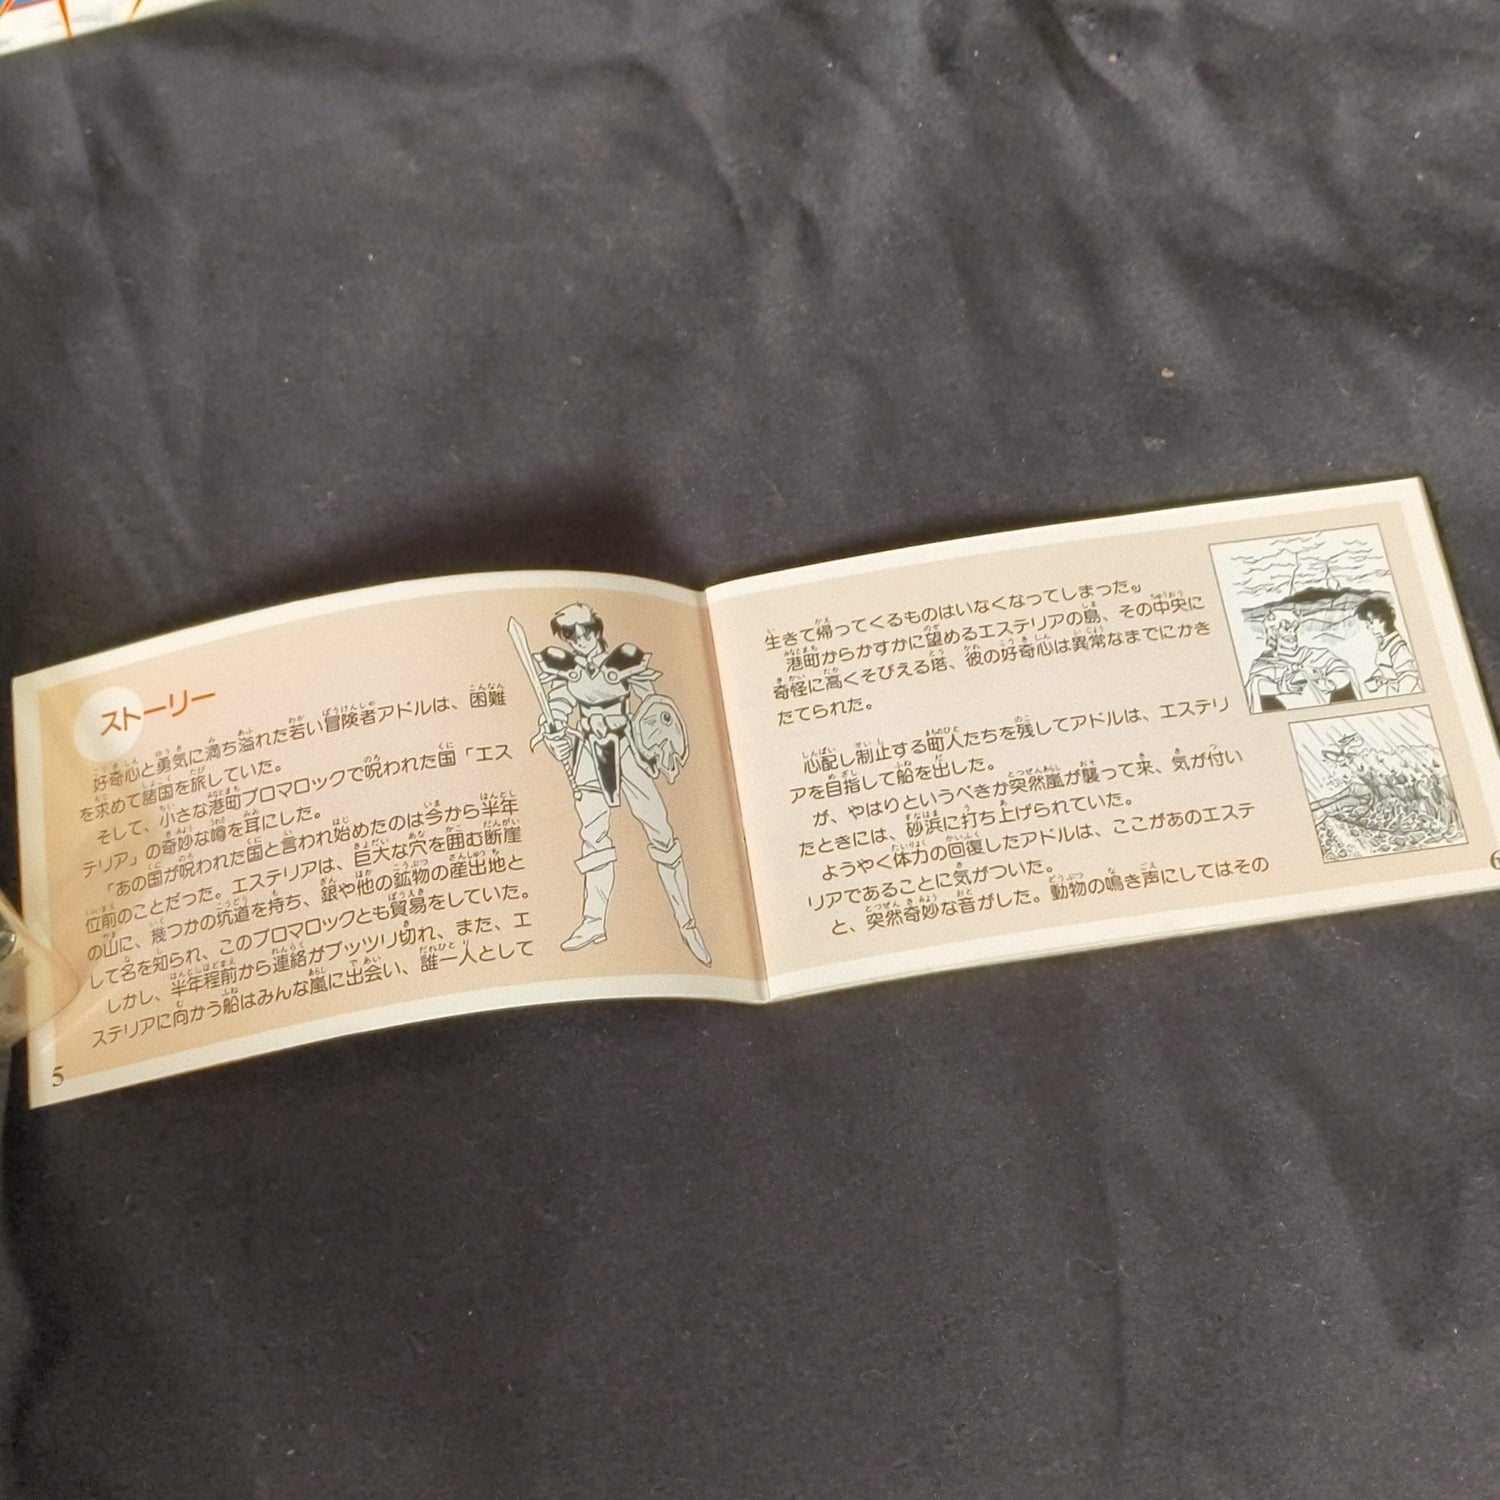 ストーリー
好奇心と勇気に満ち溢れた若い冒険者アドルは、困難
を求めて諸国を旅していた。
そして、小さな港町プロマロックで呪われた国「エス
テリア」の奇妙な噂を耳にした。
「あの国が呪われた国と言われ始めたのは今から半年
位前のことだった。エステリアは、巨大な穴を囲む断崖
の山に、幾つかの坑道を持ち、銀や他の鉱物の産出地と
して名を知られ、このプロマロックとも貿易をしていた。
しかし、半年程前から連絡がブッツリ切れ、また、エ
ステリアに向かう船はみんな嵐に出会い、誰一人として
5
生きて帰ってくるものはいなくなってしまった。』
港町からかすかに望めるエステリアの島、その中央に
奇怪に高くそびえる塔、彼の好奇心は異常なまでにかき
たてられた。
心配し制止する町人たちを残してアドルは、エステリ
アを目指して船を出した。
が、やはりというべきか突然嵐が襲って来、気が付い
たときには、砂浜に打ち上げられていた。
ようやく体力の回復したアドルは、ここがあのエステ
リアであることに気がついた。
と、突然奇妙な音がした。動物の鳴き声にしてはその
6